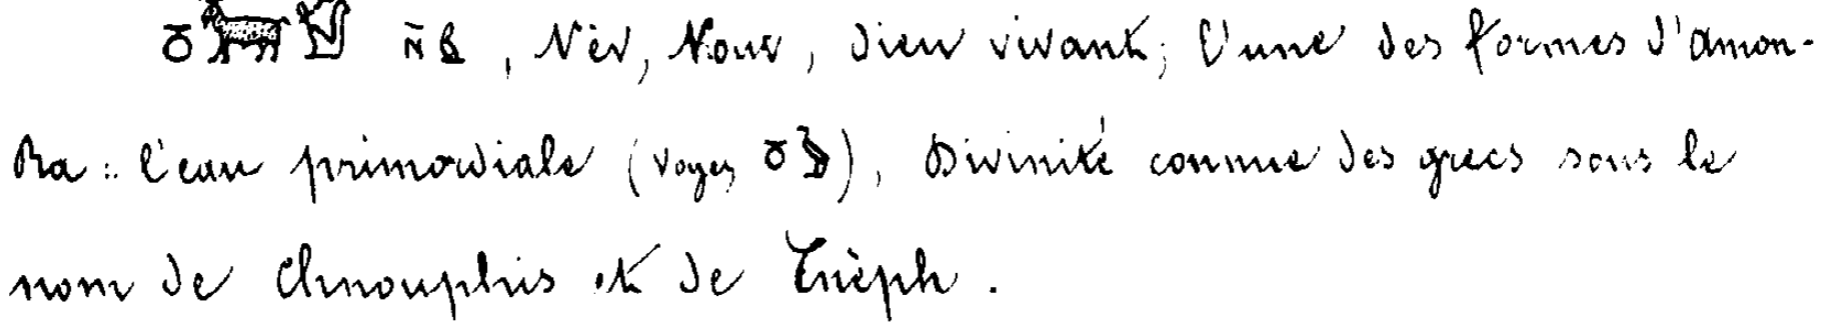 𓏌𓃝𓀭 ⲛ̄ⲃ, Nèv, Nouv, dieu vivant; l'une des formes d'Amon-
Ra: l'eau primordiale (voyez), Divinité connue des grecs sous le
nom de Chnouphis et de Cnèph.